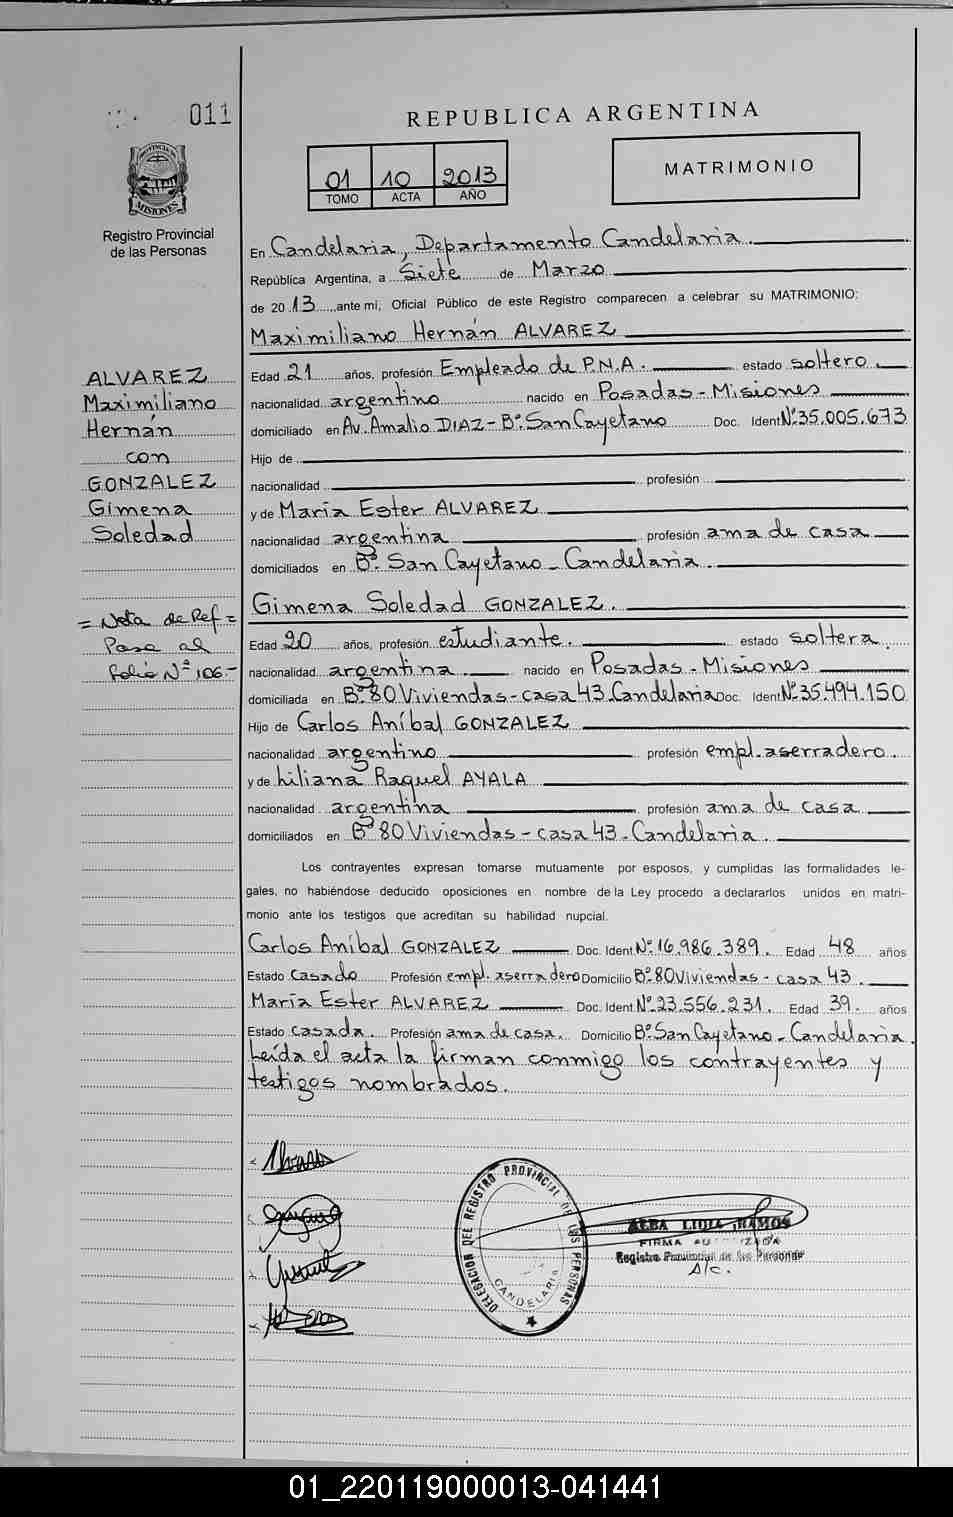 011
REPUBLICA ARGENTINA
01 10 2013
TOMO ACTA AÑO
MATRIMONIO
PROVINCIA DE
MISIONES
Registro Provincial
de las Personas
En Candelaria, Departamento Candelaria.
República Argentina, a Siete de Marzo
de 2013, ante mí, Oficial Público de este Registro comparecen a celebrar su MATRIMONIO:
Maximiliano Hernán ALVAREZ
Edad 21 años, profesión Empleado de P.N.A. estado soltero.
nacionalidad argentino nacido en Posadas - Misiones
domiciliado en Av. Amalio DIAZ - Bº. San Cayetano Doc. Ident Nº 35.005.673
Hijo de
nacionalidad profesión
y de María Ester ALVAREZ
nacionalidad argentina profesión ama de casa
domiciliados en Bº. San Cayetano - Candelaria.
Gimena Soledad GONZALEZ.
Edad 20 años, profesión estudiante. estado soltera
nacionalidad argentina nacido en Posadas - Misiones
domiciliada en Bº. 80 Viviendas - casa 43. Candelaria Doc. Ident Nº 35.494.150
Hijo de Carlos Aníbal GONZALEZ
nacionalidad argentino profesión empl. aserradero.
y de Liliana Raquel AYALA
nacionalidad argentina profesión ama de casa
domiciliados en Bº 80 Viviendas - casa 43 - Candelaria.
Los contrayentes expresan tomarse mutuamente por esposos, y cumplidas las formalidades le-
gales, no habiéndose deducido oposiciones en nombre de la Ley procedo a declararlos unidos en matri-
monio ante los testigos que acreditan su habilidad nupcial.
Carlos Aníbal GONZALEZ Doc. Ident Nº 16.986.389. Edad 48 años
Estado Casado Profesión empl. aserradero Domicilio Bº 80 Viviendas - casa 43.
María Ester ALVAREZ Doc. Ident Nº 23.556.231. Edad 39. años
Estado Casada. Profesión ama de casa. Domicilio Bº San Cayetano - Candelaria.
Leída el acta la firman conmigo los contrayentes y
testigos nombrados.
ALVAREZ
Maximiliano
Hernán
con
GONZALEZ
Gimena
Soledad
= Nota de Ref =
Pasa al
folio Nº 106.-
DELEGACION DEL REGISTRO PROVINCIAL DE LAS PERSONAS
CANDELARIA
ALBA LIDIA RAMOS
FIRMA
Registro Provincial de las Personas
A/c.
01_220119000013-041441